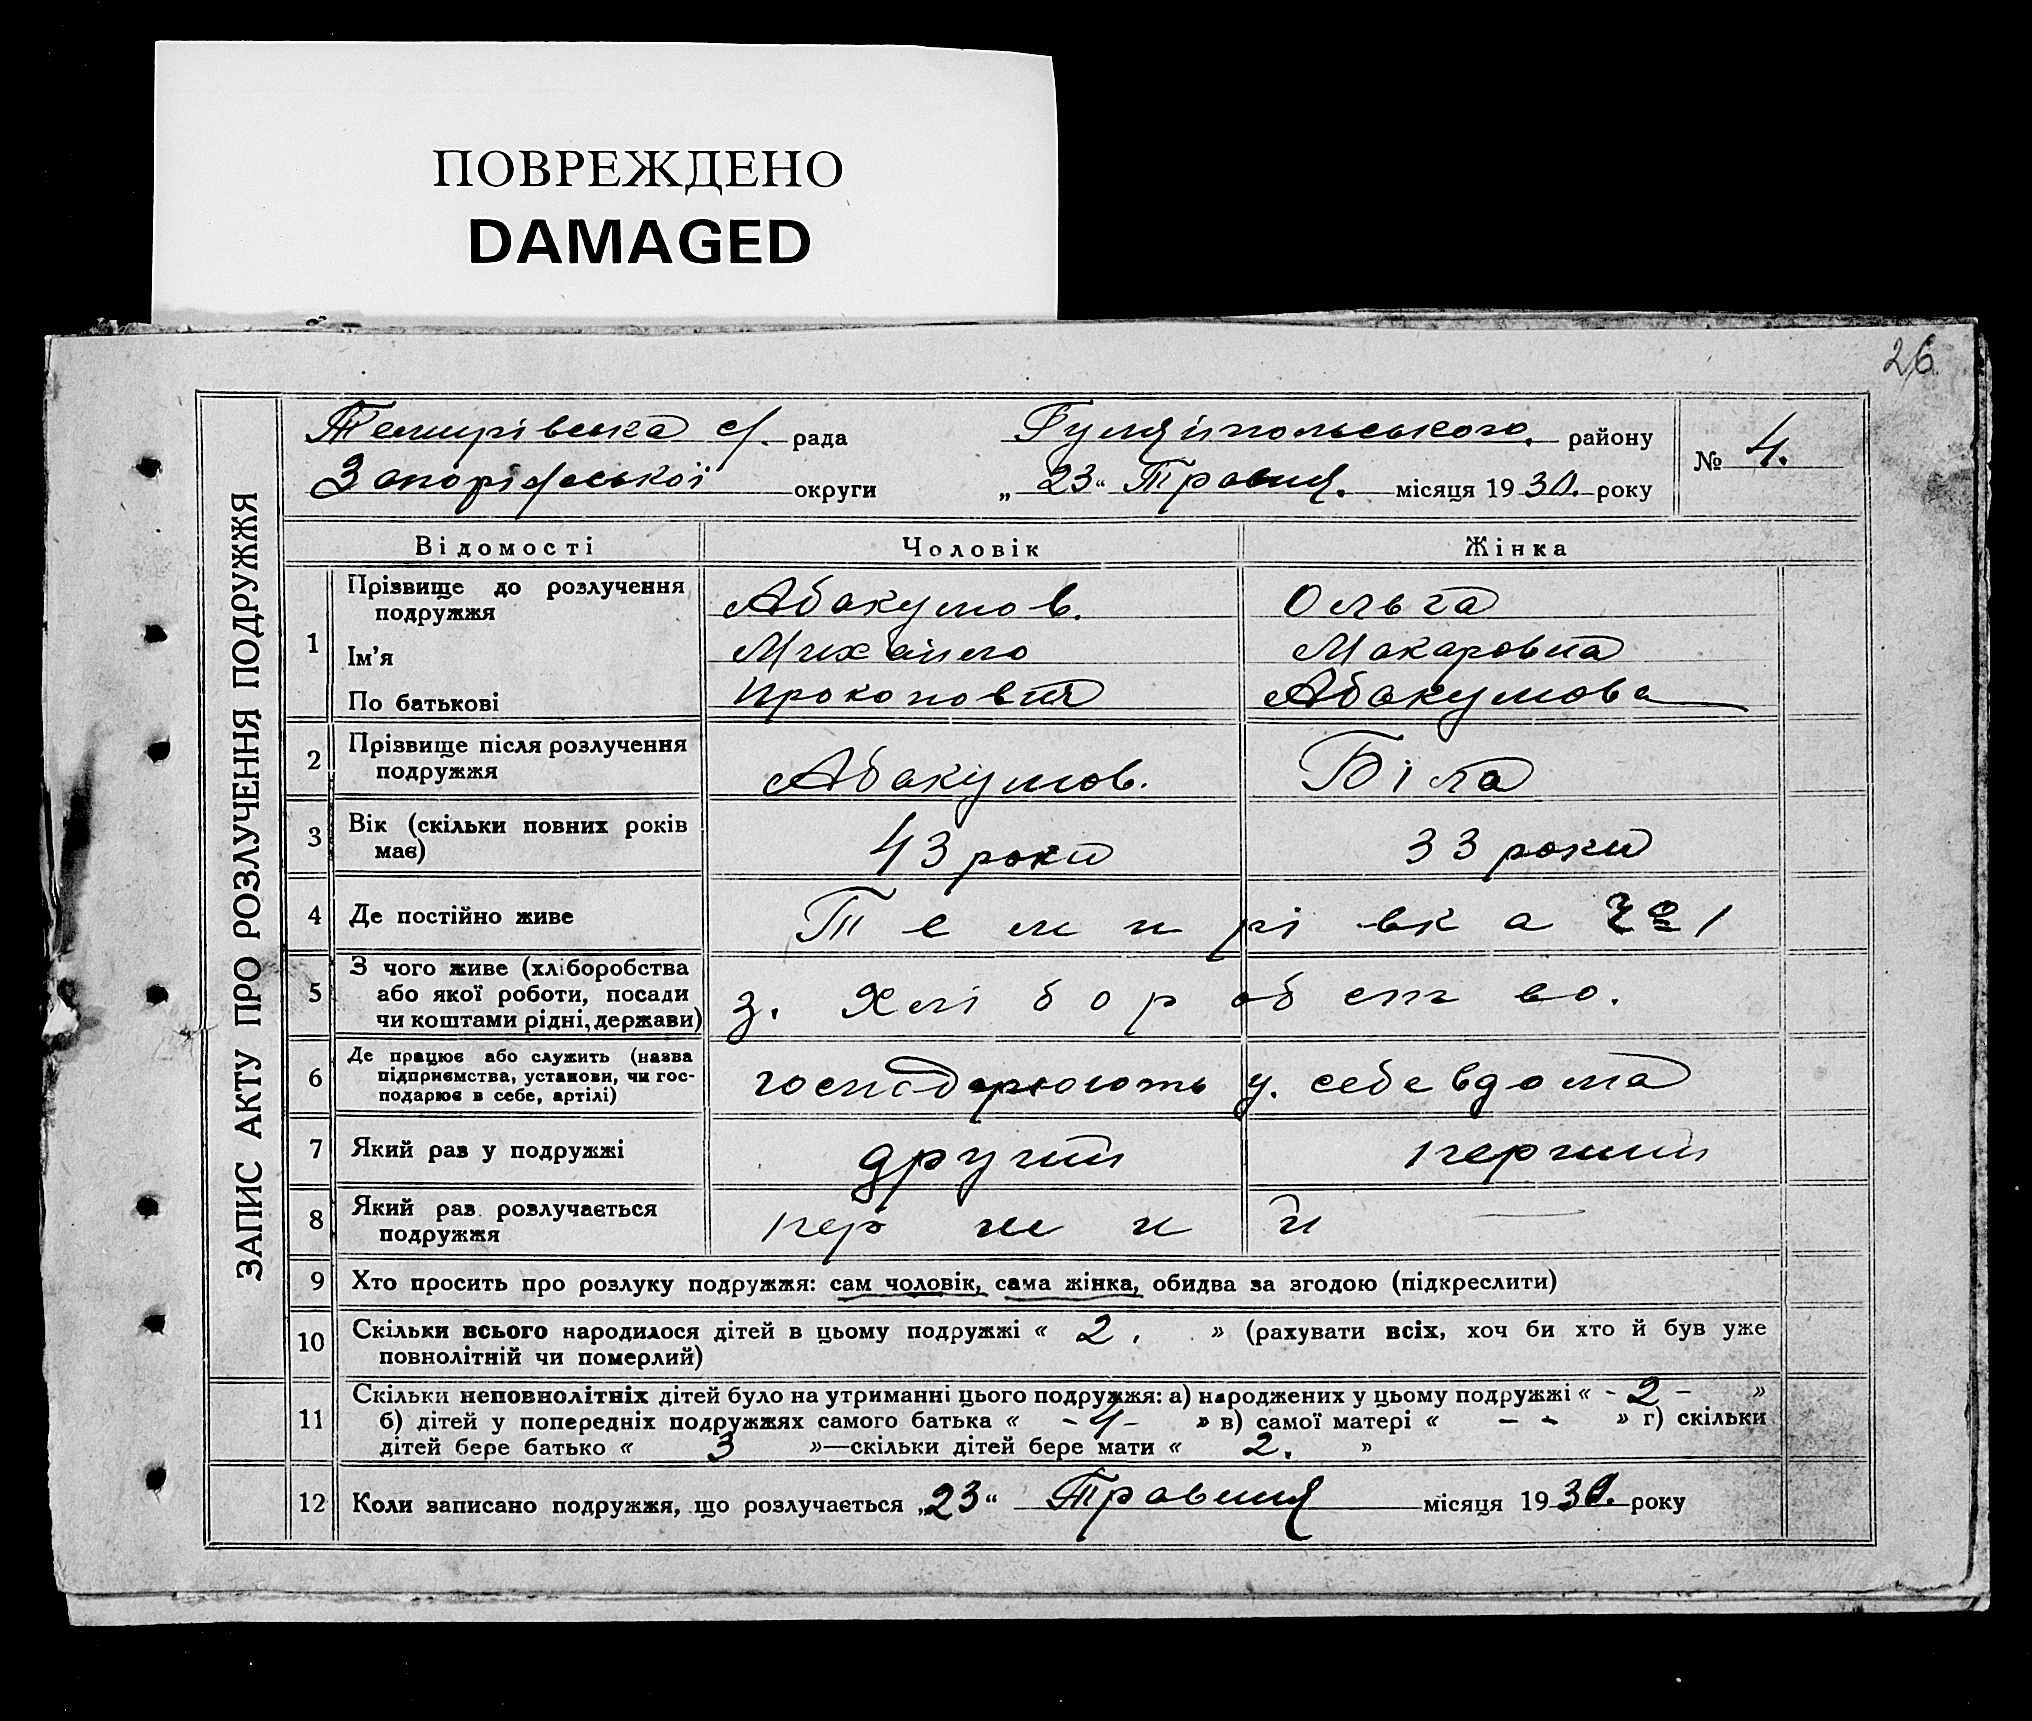 ПОВРЕЖДЕНО
DAMAGED
26
ЗАПИС АКТУ ПРО РОЗЛУЧЕННЯ ПОДРУЖЖЯ
Темирівська с/. рада Гуляйпольського району
№ 4.
Запоріжської округи „ 23 “ Травня. місяця 1930. року
Відомості Чоловік Жінка
1
Прізвище до розлучення Абакумов. Ольга
подружжя
Ім'я Михайло Макаровна
По батькові Прокопович Абакумова
2 Прізвище після розлучення
подружжя Абакумов. Біла
3 Вік (скільки повних років
має) 43 роки 33 роки
4 Де постійно живе Темирівка 1
5 З чого живе (хліборобства
або якої роботи, посади з. Хліборобство.
чи коштами рідні, держави)
6 Де працює або служить (назва
підприємства, установи, чи гос- господарюють у. себе вдома
подарює в себе, артілі)
7 Який раз у подружжі другий перший
8 Який раз розлучається перший —
подружжя
9 Хто просить про розлуку подружжя: сам чоловік, сама жінка, обидва за згодою (підкреслити)
10 Скільки всього народилося дітей в цьому подружжі « 2. » (рахувати всіх, хоч би хто й був уже
повнолітній чи померлий)
11 Скільки неповнолітніх дітей було на утриманні цього подружжя: а) народжених у цьому подружжі « - 2 - »
б) дітей у попередніх подружжях самого батька « - 4 - » в) самої матері « - - » г) скільки
дітей бере батько « 3 »—скільки дітей бере мати « 2. »
12 Коли записано подружжя, що розлучається „23“ Травня місяця 1930. року